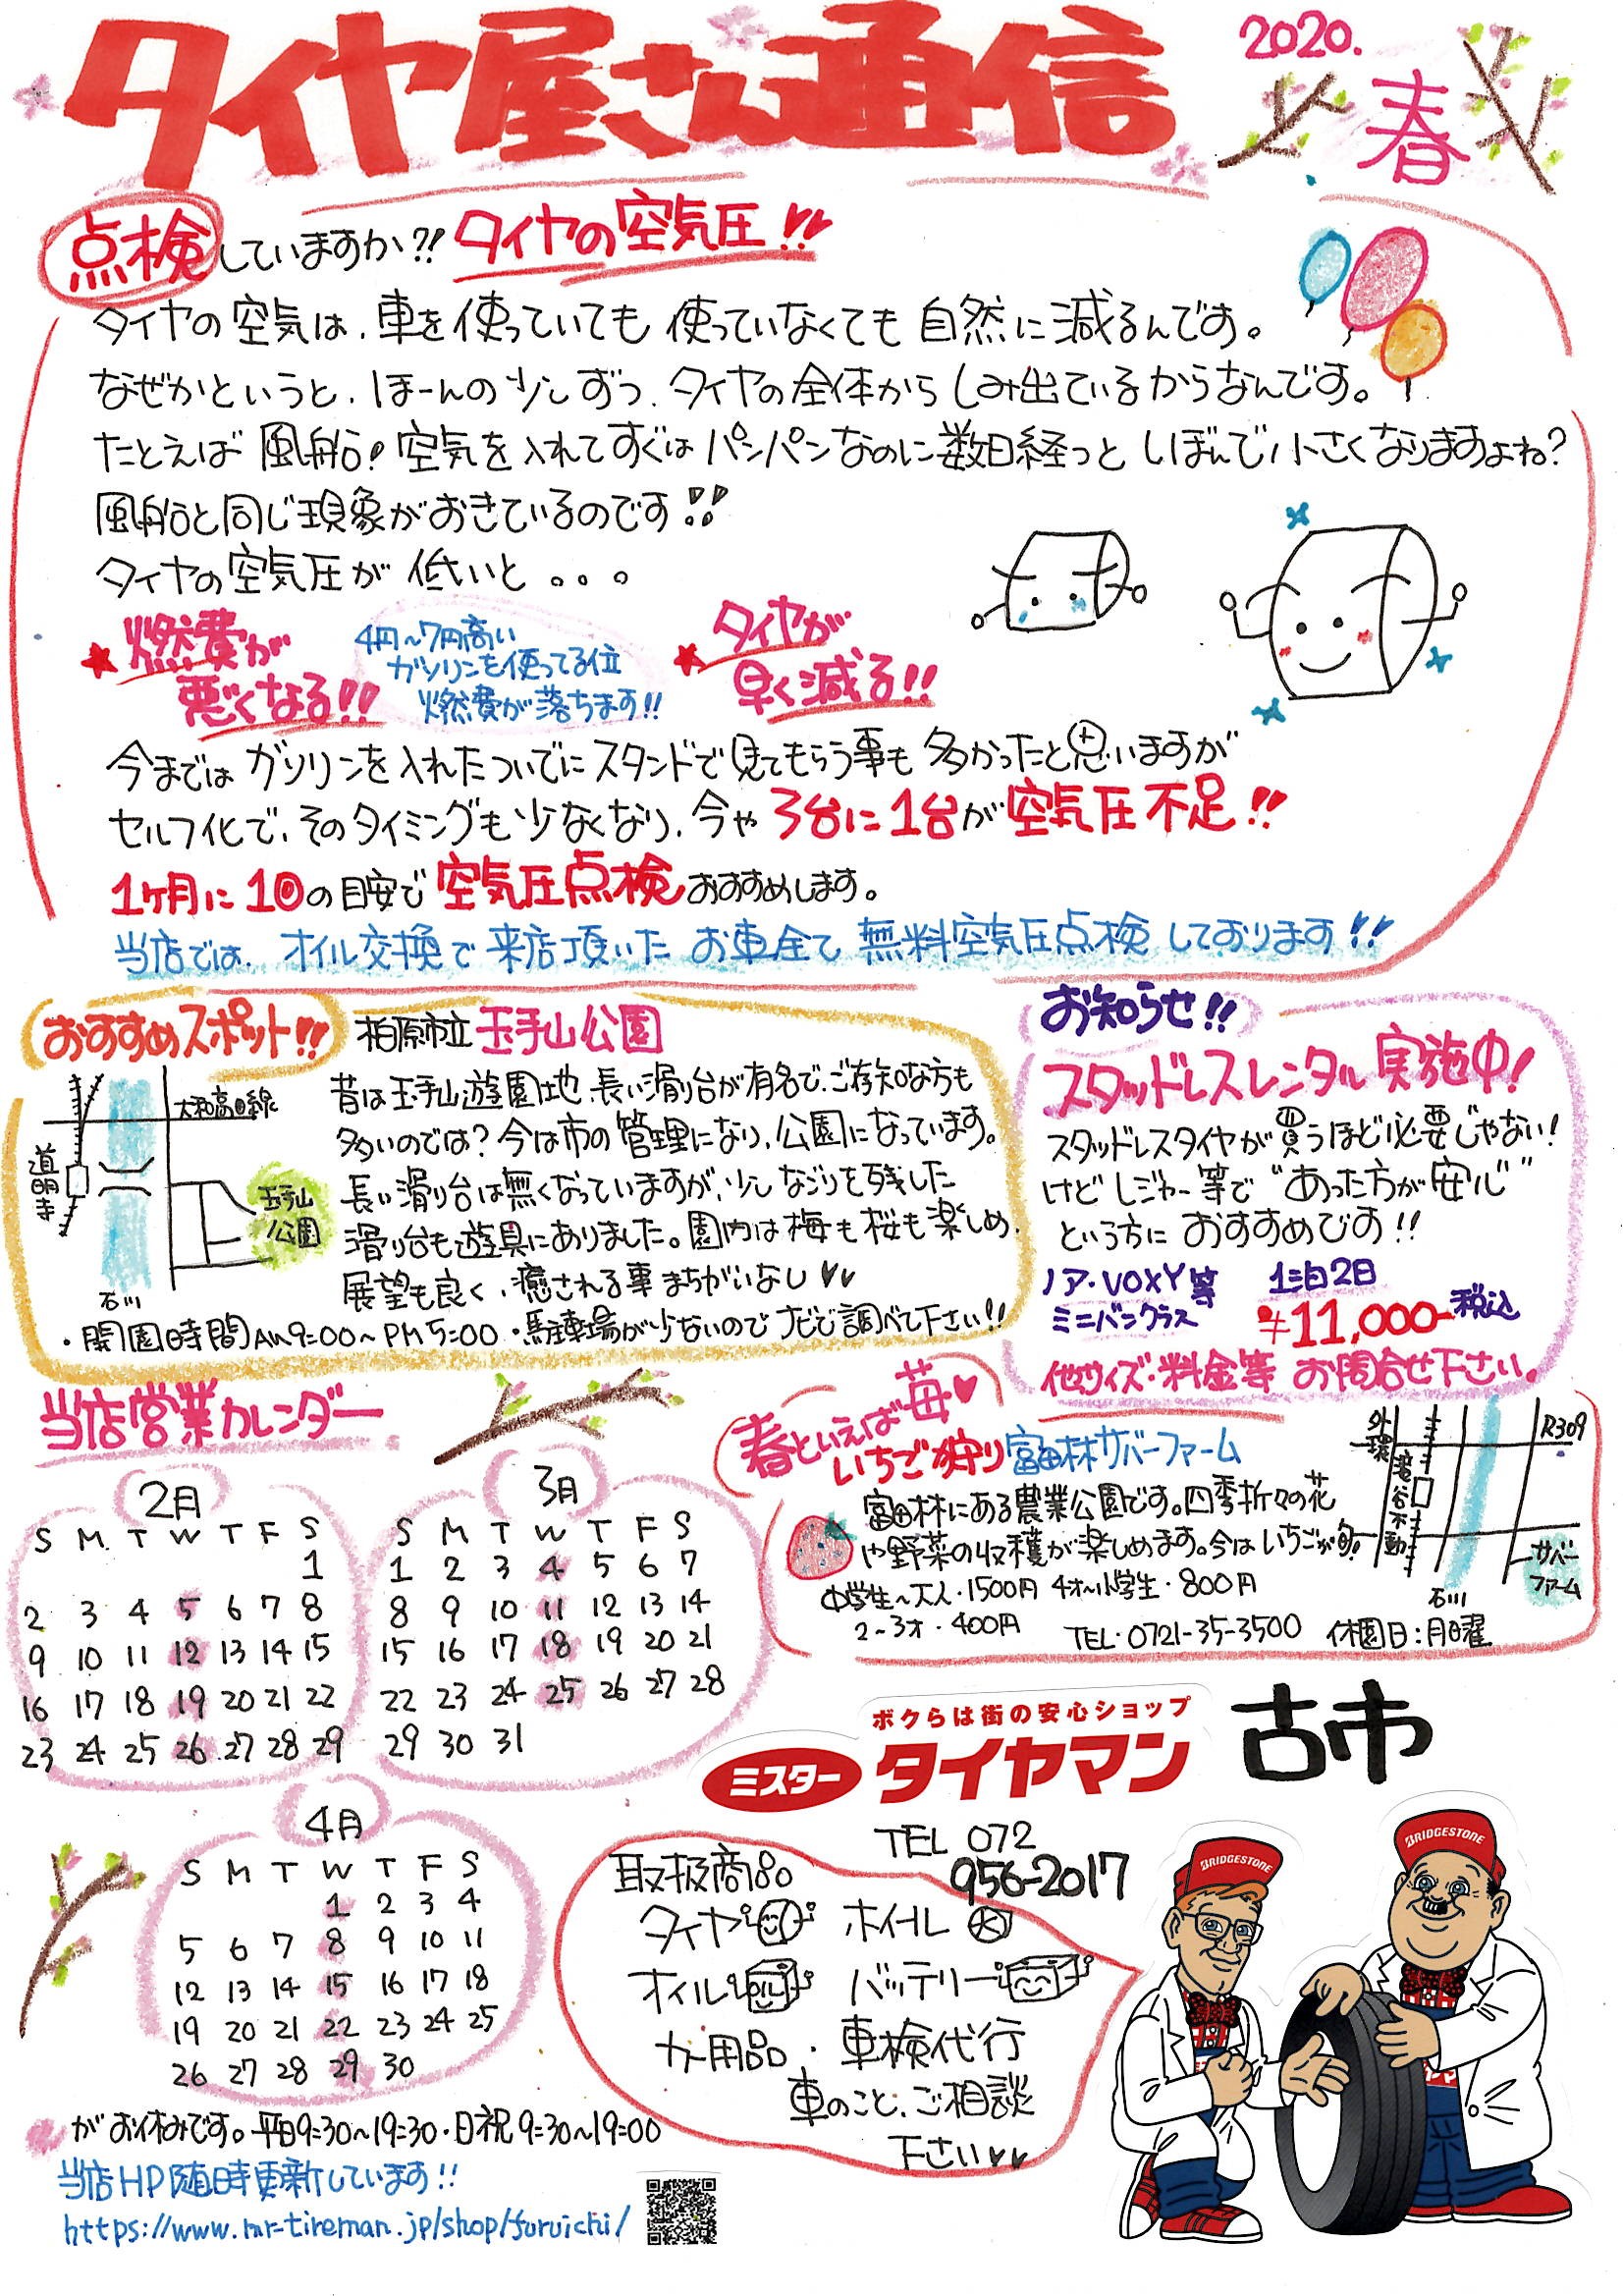 タイヤ屋さん通信
2020.
春
点検していますか?! タイヤの空気圧!!
タイヤの空気は、車を使っていても使っていなくても自然に減るんです。
なぜかというと、ほーんの少しずつ、タイヤの全体からしみ出ているからなんです。
たとえば風船!空気を入れてすぐはパンパンなのに数日経つとしぼんで小さくなりますよね?
風船と同じ現象がおきているのです!!
タイヤの空気圧が低いと。。。
★燃費が
悪くなる!!
4円~7円高い
ガソリンを使ってる位
燃費が落ちます!!
★タイヤが
早く減る!!
今まではガソリンを入れたついでにスタンドで見てもらう事も多かったと思いますが
セルフ化で、そのタイミングも少なくなり、今や3台に1台が空気圧不足!!
1ヶ月に1回の目安で空気圧点検おすすめします。
当店では、オイル交換で来店頂いたお車全て無料空気圧点検しております!!
おすすめスポット!!
柏原市立玉手山公園
昔は玉手山遊園地、長い滑り台が有名で、ご存知な方も
多いのでは?今は市の管理になり、公園になっています。
長い滑り台は無くなっていますが、少しなごりを残した
滑り台も遊具にありました。園内は梅も桜も楽しめ、
展望も良く、癒される事まちがいなし♥♥
・開園時間AM9:00~PM5:00・駐車場が少ないのでナビで調べて下さい!!
大和高田線
道明寺
玉手山
公園
石川
お知らせ!!
スタッドレスレンタル実施中!
スタッドレスタイヤが買うほど必要じゃない!
けどレジャー等で"あった方が安心"
という方におすすめです!!
ノア・VOXY等
ミニバンクラス
1泊2日
¥11,000-税込
他サイズ・料金等お問合せ下さい。
当店営業カレンダー
2月
S M T W T F S
1
2 3 4 5 6 7 8
9 10 11 12 13 14 15
16 17 18 19 20 21 22
23 24 25 26 27 28 29
3月
S M T W T F S
1 2 3 4 5 6 7
8 9 10 11 12 13 14
15 16 17 18 19 20 21
22 23 24 25 26 27 28
29 30 31
4月
S M T W T F S
1 2 3 4
5 6 7 8 9 10 11
12 13 14 15 16 17 18
19 20 21 22 23 24 25
26 27 28 29 30
がお休みです。平日9:30~19:30・日祝9:30~19:00
当店HP随時更新しています!!
https://www.mr-tireman.jp/shop/furuichi/
春といえば苺♥
いちご狩り富田林サバーファーム
富田林にある農業公園です。四季折々の花
や野菜の収穫が楽しめます。今はいちごが旬!
中学生~大人・1500円 4才~小学生・800円
2~3才・400円
TEL・0721-35-3500 休園日:月曜
外環
滝谷不動
R309
石川
サバー
ファーム
ボクらは街の安心ショップ
ミスター タイヤマン 古市
TEL 072
956-2017
取扱商品
タイヤ ホイール
オイル OIL バッテリー
カー用品・車検代行
車のこと、ご相談
下さい♥♥
BRIDGESTONE
BRIDGESTONE